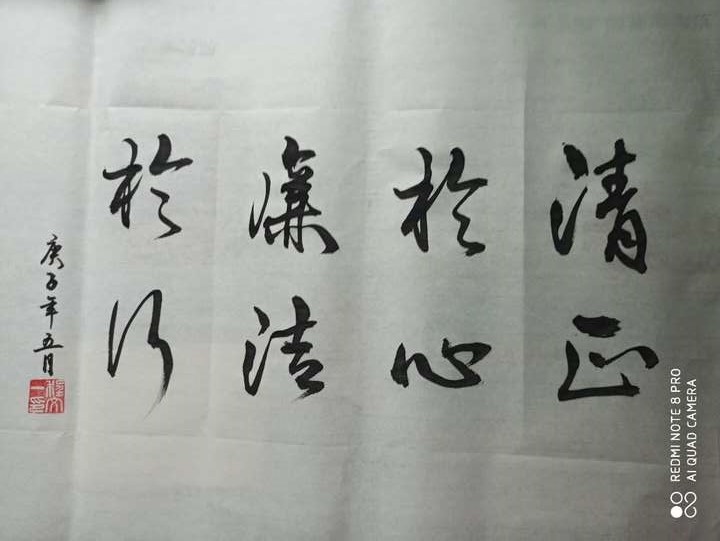 清正
於心
廉洁
於行
庚子年五月
REDMI NOTE 8 PRO
AI QUAD CAMERA